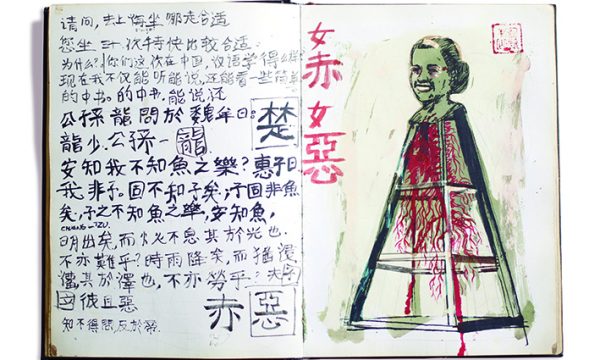 请问，去上海坐哪走合适
您坐 三 次特快比较合适.
为什么？你们这次在中国，汉语学得么样
现在我不仅能听能说，还能看一些简单
的中书。的中书，能说还
公孫龍問於魏牟曰。
楚
龍少.公孫一龍
安知我不知魚之樂？惠子曰
我非子。固不知子矣，子固非魚
矣，子之不知魚之樂，安知魚，
CHUANG-TZU.
明出矣，而火不息其於光也.
不亦難乎？時雨降矣，而猶浸
灌其於澤也，不亦勞乎？夫子
曰彼且惡
赤惡
知不得問，反於帝.
女赤女惡